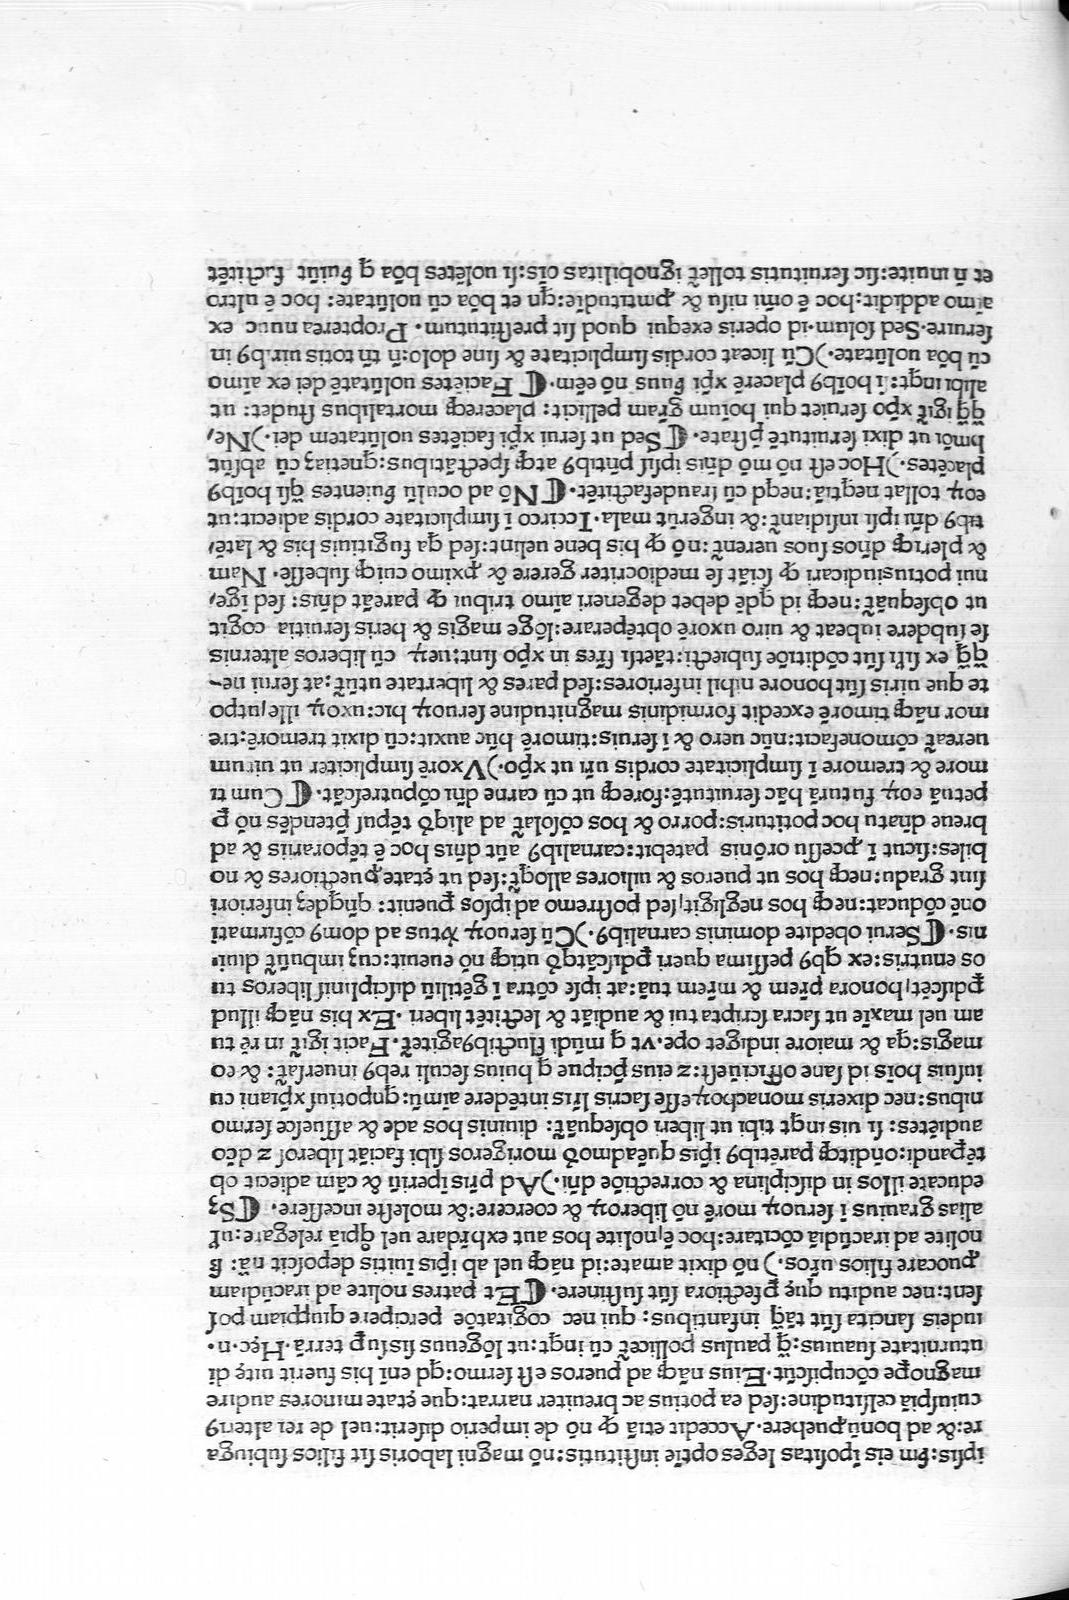 ipsis: ßm eis ĩpositas leges optĩe institutis: nõ magni laboris sit filios subiuga
re: & ad bonũ ꝓuehere. Accedit etiã ꝙ nõ de imperio diserit: uel de rei alteri9
cuiuspiã celsitudine: sed ea potius ac breuiter narrat: que ętate minores audire
magnope cõcupiscũt. Eius nãqꝫ ad pueros est sermo: qd eni his fuerit uitę di
uturnitate suauius: q̃ paulus pollicet̃ cũ inqt: ut lõgeuus sis sup terrã. Hęc. n.
iudeis sancita sũt tãq̃ infantibus: qui nec cogitatõe percipere quippiam pos
sent: nec auditu quę ꝑfectiora sũt sustinere. ⸿ Et patres nolite ad iracũdiam
ꝓuocare filios ur̃os.) nõ dixit amate: id nãqꝫ uel ab ip̃is ĩuitis deposcit nã: ß
nolite ad iracũdiã cõcitare: hoc ẽ, nolite hos aut exhẽdare uel q̃piã relegare: ul̃
alias grauius ĩ seruoꝝ morẽ nõ liberoꝝ & coercere: & moleste incessere. ⸿ Sꝫ
educate illos in disciplina & correctiõe dñi.) Ad pr̃is ĩperiũ & cãm adiecit ob
tẽpandi: oñditqꝫ parẽtib9 ip̃is quẽadmoð morigeros sibi faciãt liberos ⁊ dcõ
audiẽtes: si uis inqt tibi ut liberi obsequãt̃: diuinis hos ade & assuesce sermo
nibus: nec dixeris monachoꝝ esse sacris lr̃is intẽdere aimũ: qn potius xp̃iani cu
iusuis hoĩs id sane officiũ est: ⁊ eius p̃cipue q huius seculi reb9 inuersat̃: & eo
magis: qa & maiore indiget ope. vt q mũdi fluctib9 agitet̃. Facit igit̃ in rẽ tu
am uel maxĩe ut sacra scripta tui & audiãt & lectitẽt liberi. Ex his nãqꝫ illud
ꝑdiscẽt, honora pr̃em & mr̃em tuã: at ip̃se cõtra ĩ gẽtiliũ disciplinis liberos tu
os enutris: ex qb9 pessima queri ꝑdiscãt qð utiqꝫ nõ euenit: cuꝫ imbuũt̃ diui,
nis. ⸿ Serui obedite dominis carnalib9.) Cũ seruoꝝ xtus ad dom9 cõfirmati
onẽ cõducat: neqꝫ hos negligit, sed postremo ad ipsos ꝑuenit: qñqdeꝫ inferiori
sint gradu: neqꝫ hos ut pueros & uiliores alloqt̃: sed ut ętate ꝓuectiores & no
biles: sicut ĩ ꝓcessu orõnis patebit: carnalib9 aũt dñis hoc ẽ tẽporariis & ad
breue dñatu hoc potituris: porro & hos cõsolat̃ ad aliqð tẽpus ꝓtendẽs nõ ꝑ
petuã eoꝝ futurã hãc seruitutẽ: foreqꝫ ut cũ carne dñi cõputrescãt. ⸿ Cum ti
more & tremore ĩ simplicitate cordis ur̃i ut xp̃o.) Vxorẽ simpliciter ut uirum
uereat̃ cõmonefacit: nũc uero & ĩ seruis: timorẽ hũc auxit: cũ dixit tremorẽ: tre
mor nãqꝫ timorẽ excedit formidinis magnitudine seruoꝝ hic: uxoꝝ ille, utpo
te que uiris sũt honore nihil inferiores: sed pares & libertate utũt̃: at serui ne-
q̃q̃ ex isti sũt cõditiõe subiecti: tãetsi fr̃es in xp̃o sint: ueꝝ cũ liberos alternis
se subdere iubeat & uiro uxorẽ obtẽperare: lõge magis & heris seruitia cogit
ut obsequãt̃: neqꝫ id qdẽ debet degeneri aĩmo tribui ꝙ pareãt dñis: sed ige,
nui potius iudicari ꝙ sciãt se mediocriter gerere & ꝓximo cuiqꝫ subesse. Nam
& pleriqꝫ dños suos uerent̃: nõ ꝙ his bene uelint: sed qa fugitiuis his & latẽ,
tib9 dñi ipsi insidiant̃: & ingerũt mala. Iccirco ĩ simplicitate cordis adiecit: ut
eoꝝ tollat neqtiã: neqd cũ fraude factitẽt. ⸿ Nõ ad oculũ ßuientes q̃si hoĩb9
placẽtes.) Hoc est nõ mõ dñis ipsis pñtib9 atqꝫ spectãtibus: qnetiaꝫ cũ absũt
hmõi ut dixi seruitutẽ ꝑstate. ⸿ Sed ut serui xp̃i faciẽtes uolũtatem dei.) Ne,
q̃q̃ igit̃ xp̃o seruiet qui hoĩum gr̃am pellicit: placereqꝫ mortalibus studet: ut
alibi inqt: ĩ hoĩb9 placerẽ xp̃i ßuus nõ eẽm. ⸿ Faciẽtes uolũtatẽ dei ex aimo
cũ bõa uolũtate.) Cũ liceat cordis simplicitate & sine dolo: ñ tñ totis uirib9 in
seruire. Sed solum. id operis exequi quod sit prestitutum. Propterea nunc ex
aĩmo addidit: hoc ẽ oĩmi nisu & ꝓmtitudĩe: qn et bõa cũ uolũtate: hoc ẽ ultro
et ñ inuite: sic seruitutis tollet̃ ignobilitas oĩs: si uolẽtes bõa q ßuiũt factitẽt